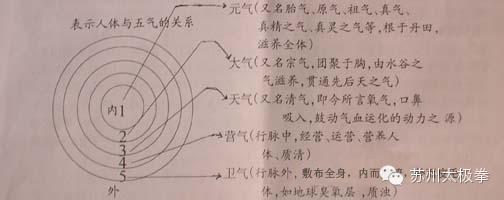 表示人体与五气的关系
元气(又名胎气、原气、祖气、真气、
真精之气、真灵之气等,根于丹田,
滋养全体)
大气(又名宗气,团聚于胸,由水谷之
气滋养,贯通先后天之气)
天气(又名清气,即今所言氧气,口鼻
吸入,鼓动气血运化的动力之源)
营气(行脉中,经营、运营、营养人
体、质清)
卫气(行脉外,敷布全身,内而
体,如地球臭氧层,质浊)
内1
2
3
4
5
外
苏州太极拳